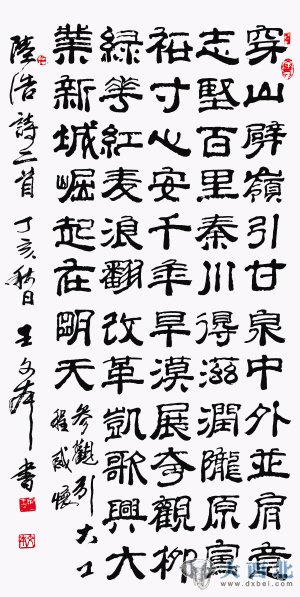 穿山劈嶺引甘泉中外並肩意
志堅百里秦川得滋潤隴原富
裕寸心安千年旱漠展奇觀柳
綠花紅麦浪翻改革凱歌興大
業新城崛起在明天
參觀引大工
程感懷
陸浩詩二首 丁亥秋日 王文 書
大西北
www.dxbei.com